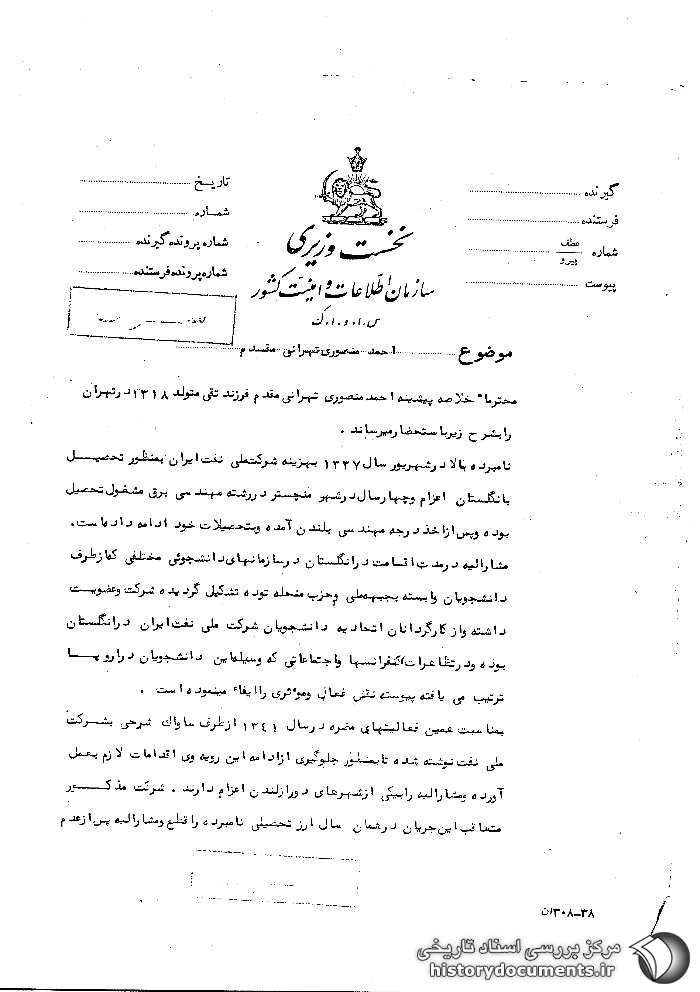 گیرنده
فرستنده
شماره عطف پیرو
پیوست
تاریخ
شماره
شماره پرونده گیرنده
شماره پرونده فرستنده
نخست وزیری
سازمان اطلاعات و امنیت کشور
س.ا.و.ا.ک
موضوع احمد منصوری تهرانی مقدم
محترما" خلاصه پیشینه احمد منصوری تهرانی مقدم فرزند تقی متولد ۱۳۱۸ در تهران
را بشرح زیر باستحضار میرساند .
نامبرده بالا در شهریور سال ۱۳۳۷ بهزینه شرکت ملی نفت ایران بمنظور تحصیل
بانگلستان اعزام و چهار سال در شهر منچستر در رشته مهندسی برق مشغول تحصیل
بوده و پس از اخذ درجه مهندسی بلندن آمده و بتحصیلات خود ادامه داده است.
مشارالیه در مدت اقامت در انگلستان در سازمانهای دانشجوئی مختلفی که از طرف
دانشجویان وابسته بجبهه ملی و حزب منحله توده تشکیل گردیده شرکت و عضویت
داشته و از کارگردانان اتحادیه دانشجویان شرکت ملی نفت ایران در انگلستان
بوده و در تظاهرات کنفرانسها و اجتماعاتی که وسیله این دانشجویان در اروپا
ترتیب می یافته پیوسته نقش فعال و موثری را ایفاء مینموده است .
بمناسبت همین فعالیتهای مضره در سال ۱۳۴۱ از طرف ساواک شرحی بشرکت
ملی نفت نوشته شده تا بمنظور جلوگیری از ادامه این رویه وی اقدامات لازم بعمل
آورده و مشارالیه را بیکی از شهرهای دور از لندن اعزام دارند . شرکت مذکور
متعاقب این جریان در همان سال ارز تحصیلی نامبرده را قطع و مشارالیه پس از عدم
۳۸-۳۰۸/ن
مرکز بررسی اسناد تاریخی
historydocuments.ir